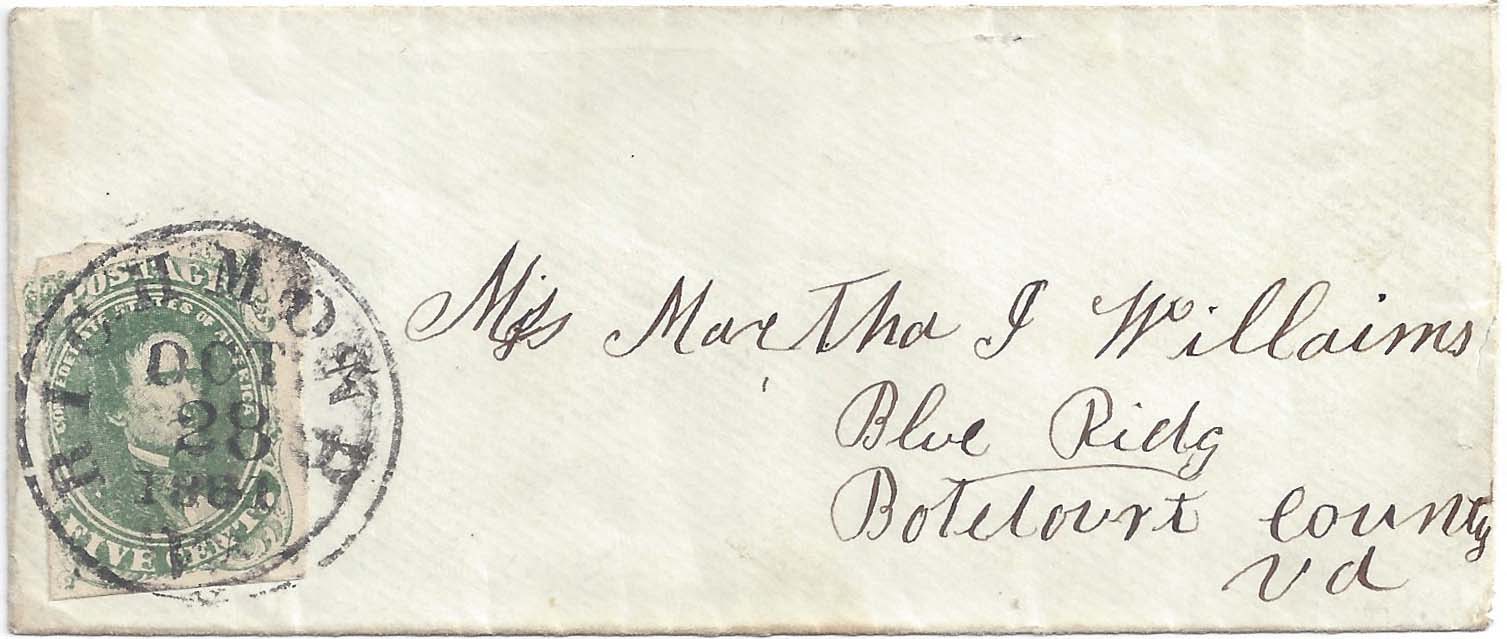 POSTAGE
CONFEDERATE STATES OF AMERICA
FIVE CENTS
RICHMOND
OCT
28
1861
VA
Miss Martha J Willaims
Blue Ridg
Botetourt County
Va